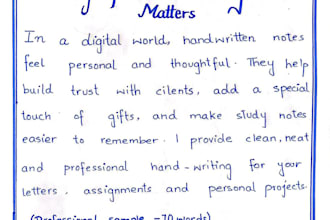 Matters
In a digital world, handwritten notes
feel personal and thoughtful. They help
build trust with cilents, add a special
touch of gifts, and make study notes
easier to remember. I provide clean, neat
and professional hand-writing for your
letters. assignments and personal projects.
(Professional sample -70 words)